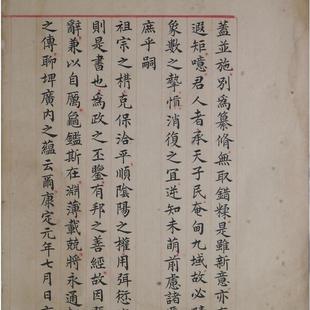 蓋並施別為纂脩無取錯糅是雖新意亦
遐矩噫君人者承天子民奄甸九域故必
象數之消復之宜逆知未萌前慮諸
庶乎嗣
祖宗之構克保洽平順陰陽之權用弭愆
則是書也為政之丕鑒有邦之善經故因
辭兼以自厲龜鑑斯在淵薄載兢將永通
之傳聊埤廣內之蘊云爾康定元年七月日